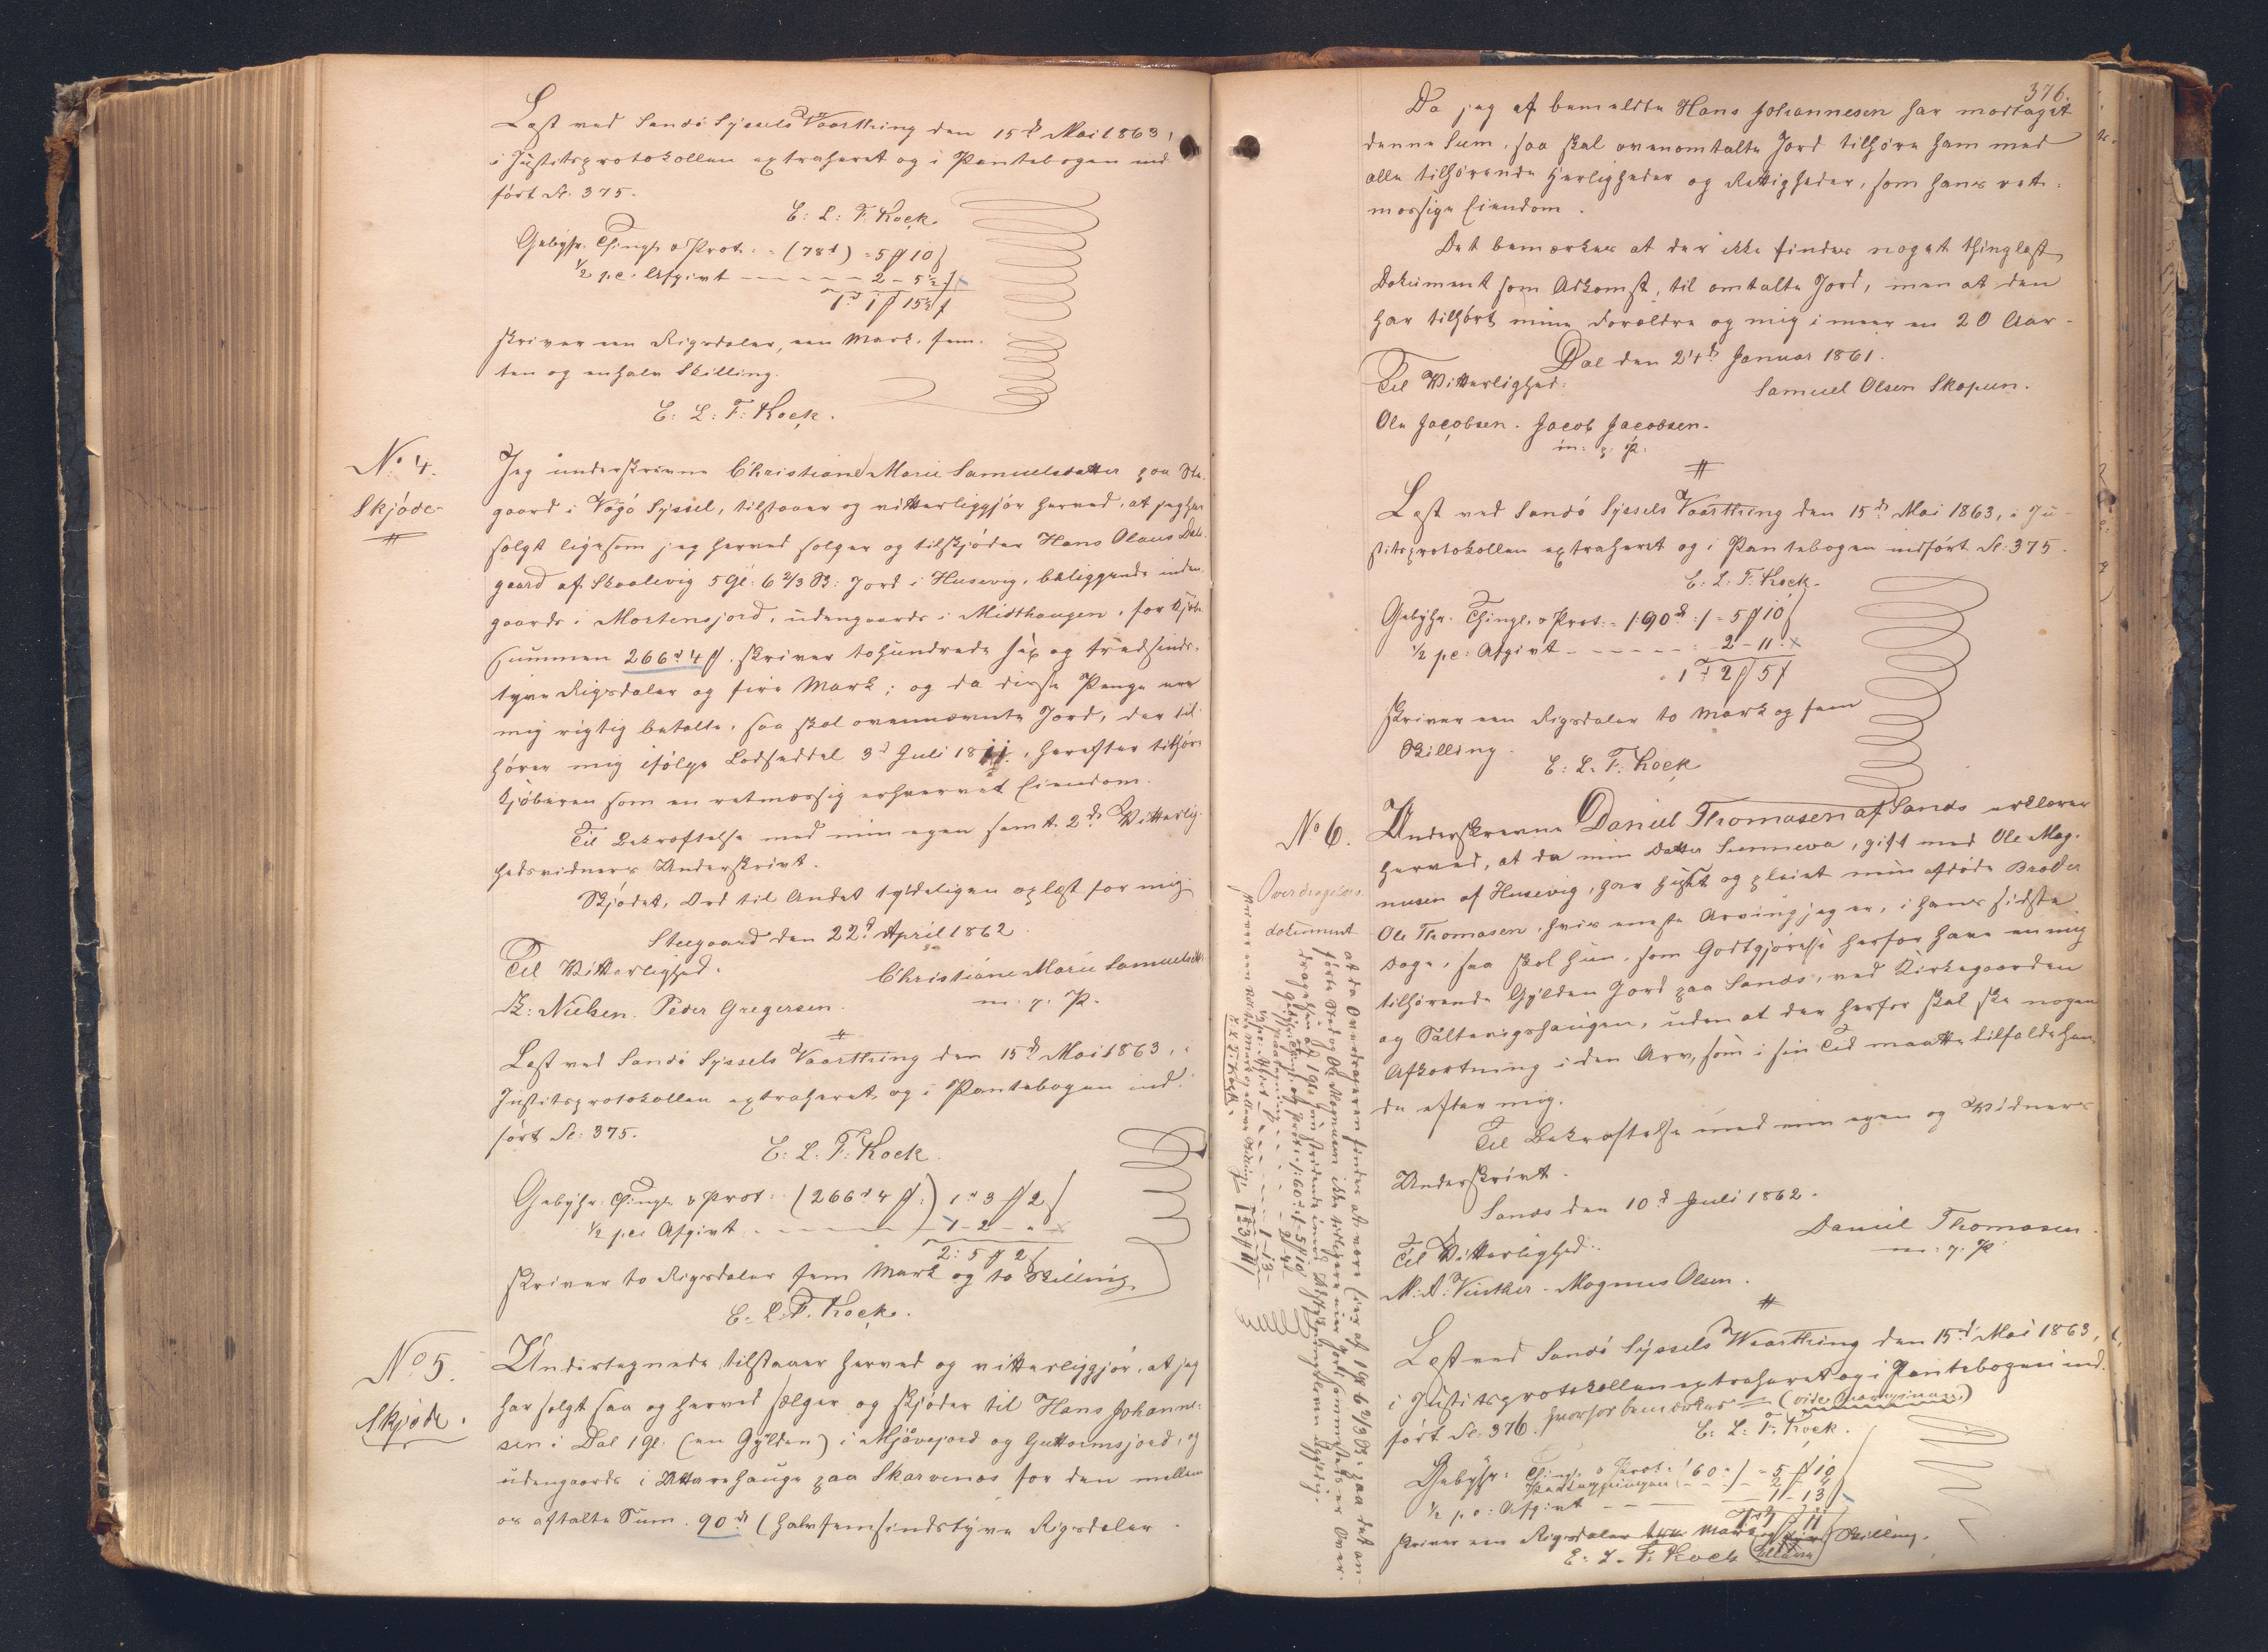 Læst ved Sandö Syssels Vaarthing den 15d Mai 1863,
i Justitsprotokollen extraheret og i Pantebogen ind
fört Sc. 375.
E: L: F. Kock.
Gebyhr. Thingl. & Prot. (78d) = 5 ƒ 10
½ p.c. Afgivt - - - - 2 - 5½
1d 1 ƒ 15½
skriver een Rigsdaler, een Mark, fem-
ten og enhalv Skilling.
E: L: F: Kock.
No 4.
Skjöde-
Jeg underskrevne Christiane Marie Samuelsdatter paa Ste-
gaard i Vaagö Syssel, tilstaaer og vitterliggjör herved, at jeg har
solgt ligesom jeg herved sælger og tilskjöder Hans Olaus Dals-
gaard af Skaalevig 5 Gl: 6 2/3 Sk: Jord i Husevig, beliggende inden
gaards i Mortensjord, udengaards i Midthaugen, for Kjöbe
summen 266d 4 ƒ. skriver tohundrede sex og tredsinds-
tyve Rigsdaler og fire Mark; og da disse Penge ere
mig rigtig betalte, saa skal ovennævnte Jord, der til-
hörer mig ifölge Lodseddel 3d Juli 1811, herefter tilhöre
Kjöberen som en retmæssig erhvervet Eiendom.
Til Bekræftelse med min egen samt 2de Vitterlig-
hedsvidners Underskrivt.
Skjödet, Ord til Andet tydeligen oplæst for mig
Steegaard den 22d April 1862
Til Vitterlighed.
Christiane Marie Samuelsdtt.
Z: Nielsen. Peder Gregersen.
m. p. P.
Læst ved Sandö Syssels Vaarthing den 15d Mai 1863, i
Justitsprotokollen extraheret og i Pantebogen ind-
fört Sc: 375.
E. L. F: Kock.
Gebyhr. Thingl. & Prot: (266d 4 ƒ:) 1d 3 ƒ 2
½ p.c. Afgivt - - - - 1 - 2 - "
2: 5 ƒ 2
skriver to Rigsdaler fem Mark og to Skilling
E: L: F. Kock.
No 5.
Skjöde.
Undertegnede tilstaaer herved og vitterliggjör, at jeg
har solgt saa og herved sælger og skjöder til Hans Johanne-
sen i Dal 1 Gl. (en Gylden) i Mjåvejord og Guttormsjord, og
udengaards i Uttarehauge paa Skarvenos for den mellem
os aftalte Sum. 90d (halvfemsindstyve Rigsdaler.
376.
Da jeg af bemeldte Hans Johannesen har modtaget
denne Sum, saa skal ovenomtalte Jord tilhöre ham med
alle tilhörende Herligheder og Rettigheder, som hans rett-
mæssige Eiendom.
Det bemærkes at der ikke findes noget thinglæst
Dokument som Adkomst til omtalte Jord, men at den
har tilhört mine Forældre og mig i meer en 20 Aar.
Dal den 24d Januar 1861.
Til Vitterlighed:
Samuel Olsen Skopun.
Ole Jacobsen. Jacob Jacobsen.
m: p. P.
Læst ved Sandö Syssels Vaarthing den 15d Mai 1863, i Ju-
stitsprotokollen extraheret og i Pantebogen indfört Sc: 375.
E: L: F. Kock.
Gebyhr. Thingl. & Prot: /:90d:/ = 5 ƒ 10
½ p.c: Afgivt - - - - - : 2 - 11
1d 2 ƒ 5
skriver een Rigsdaler to Mark og fem
Skilling.
E: L. F. Kock
No 6.
Overdragelses
dokument
Underskrevne Daniel Thomasen af Sands erklærer
herved, at da min Datter Sunneva, gift med Ole Mag-
nusen af Husevig, har huset og pleiet min afdöde Broder
Ole Thomasen, hvis eneste Arving jeg er, i hans sidste
Dage, saa skal hun, som Godtgjörelse herfor have en mig
tilhörende Gylden Jord paa Sands, ved Kirkegaarden
og Saltevigshaugen, uden at der herfor skal ske nogen
Afkortning i den Arv, som i sin Tid maatte tilfalde hen-
de efter mig.
Til Bekræftelse med min egen og Vidners
Underskrivt.
Sands den 10d Juli 1862.
Til Vitterlighed:
Daniel Thomasen.
m: p. P
M. A. Winther. Magnus Olsen.
Læst ved Sandö Syssels Waarthing den 15d Mai 1863,
i Justitsprotokollen extraheret og i Pantebogen ind-
fört Sc. 376. hvorfor bemærkes (vide Marginen)
E: L: F: Kock.
Gebyhr: Thingl. & Prot. (60d) = 5 ƒ 10
Paategningen - - - 2 - 4
½ p.c: Afgivt - - - 1 - 13
1d 3 ƒ 11
skriver een Rigsdaler tre Mark og Skilling.
Elleve
E: L. F. Kock
at da Overdrageren findes at være Eier af 1 Gl 6 2/3 Sk: paa det an-
förte Sted og Ole Magnusen ikke tidligere eier Jord sammesteds er Over-
dragelsen af 1 Gl: som stridende imod Udstykningsloven ugyldig.
Gebyhr: Thingl. og Prot: /:60d:/ 5 ƒ 10
Paategning - - - 2 - 4
½ p.c: Afgivt - - - 1 - 13
1d 3 ƒ 11
skriver een Rd tre Mark og elleve Skilling
E. L. F. Kock.